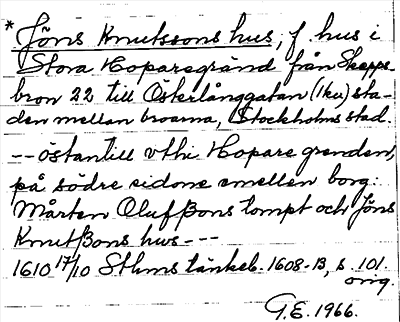 * Jöns Knutssons hus, f. hus i
Stora Hoparegränd från Skepps-
bron 22 till Österlånggatan (1ku) sta-
den mellan broarna, Stockholms stad.
-- östantill vthi Hopare grenden,
på södre sidone emellen borg:
Mårten Olufßons tompt och Jöns
Knutßons hus ---
1610 17/10 Sthms tänkeb. 1608-13, s. 101.
orig.
G.E. 1966.